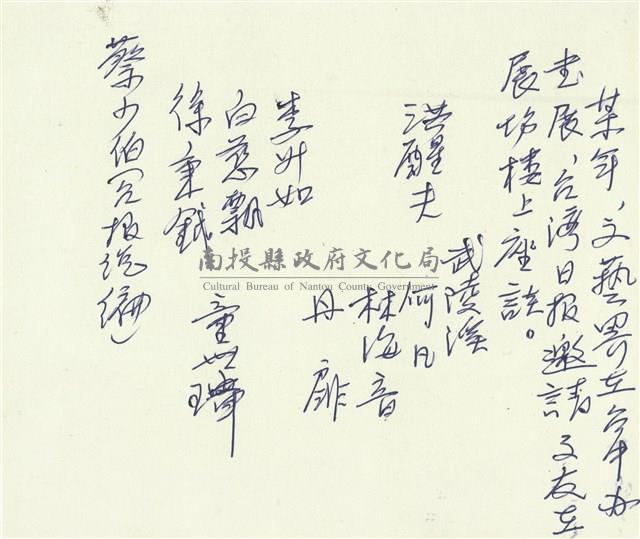 某年，文藝界在台中办
书展，台湾日报邀請文友在
展場楼上座談。
武陵溪
洪醒夫
何凡
林海音
李升如
丹扉
白慈飄
徐秉鉞
童世璋
蔡少伯 報 編
南投縣政府文化局
Cultural Bureau of Nantou County Government